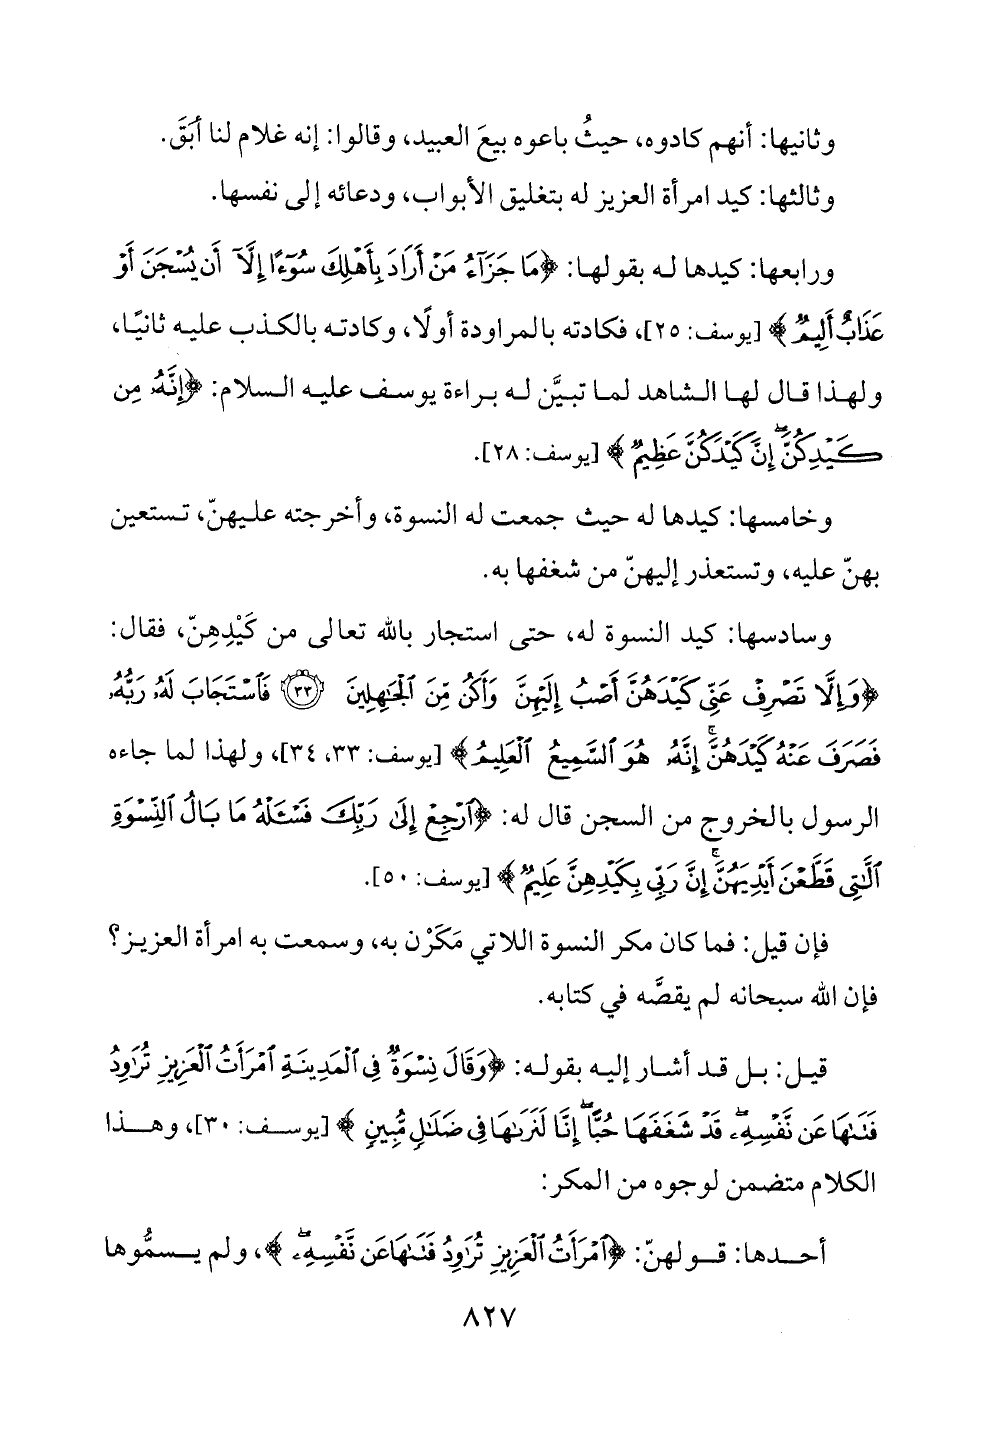 وثانيها: أنهم كادوه، حيثُ باعوه بيعَ العبيد، وقالوا: إنه غلام لنا أبَقَ.
وثالثها: كيد امرأة العزيز له بتغليق الأبواب، ودعائه إلى نفسها.
ورابعها: كيدها له بقولها: ﴿مَا جَزَآءُ مَنۡ أَرَادَ بِأَهۡلِكَ سُوٓءًا إِلَّآ أَن يُسۡجَنَ أَوۡ
عَذَابٌ أَلِيمٞ﴾ [يوسف: ٢٥]، فكادته بالمراودة أولًا، وكادته بالكذب عليه ثانيًا،
ولهذا قال لها الشاهد لما تبيَّن له براءة يوسف عليه السلام: ﴿إِنَّهُۥ مِن
كَيۡدِكُنَّۖ إِنَّ كَيۡدَكُنَّ عَظِيمٞ﴾ [يوسف: ٢٨].
وخامسها: كيدها له حيث جمعت له النسوة، وأخرجته عليهنّ، تستعين
بهنّ عليه، وتستعذر إليهنّ من شغفها به.
وسادسها: كيد النسوة له، حتى استجار بالله تعالى من كَيْدِهِنّ، فقال:
﴿وَإِلَّا تَصۡرِفۡ عَنِّي كَيۡدَهُنَّ أَصۡبُ إِلَيۡهِنَّ وَأَكُن مِّنَ ٱلۡجَٰهِلِينَ ٣٣ فَٱسۡتَجَابَ لَهُۥ رَبُّهُۥ
فَصَرَفَ عَنۡهُ كَيۡدَهُنَّۚ إِنَّهُۥ هُوَ ٱلسَّمِيعُ ٱلۡعَلِيمُ﴾ [يوسف: ٣٣، ٣٤]، ولهذا لما جاءه
الرسول بالخروج من السجن قال له: ﴿ٱرۡجِعۡ إِلَىٰ رَبِّكَ فَسۡـَٔلۡهُ مَا بَالُ ٱلنِّسۡوَةِ
ٱلَّٰتِي قَطَّعۡنَ أَيۡدِيَهُنَّۚ إِنَّ رَبِّي بِكَيۡدِهِنَّ عَلِيمٞ﴾ [يوسف: ٥٠].
فإن قيل: فما كان مكر النسوة اللاتي مَكَرْن به، وسمعت به امرأة العزيز؟
فإن الله سبحانه لم يقصَّه في كتابه.
قيل: بل قد أشار إليه بقوله: ﴿وَقَالَ نِسۡوَةٞ فِي ٱلۡمَدِينَةِ ٱمۡرَأَتُ ٱلۡعَزِيزِ تُرَٰوِدُ
فَتَىٰهَا عَن نَّفۡسِهِۦۖ قَدۡ شَغَفَهَا حُبًّاۖ إِنَّا لَنَرَىٰهَا فِي ضَلَٰلٖ مُّبِينٖ﴾ [يوسف: ٣٠]، وهذا
الكلام متضمن لوجوه من المكر:
أحدها: قولهنّ: ﴿ٱمۡرَأَتُ ٱلۡعَزِيزِ تُرَٰوِدُ فَتَىٰهَا عَن نَّفۡسِهِۦۖ﴾، ولم يسمُّوها
٨٢٧